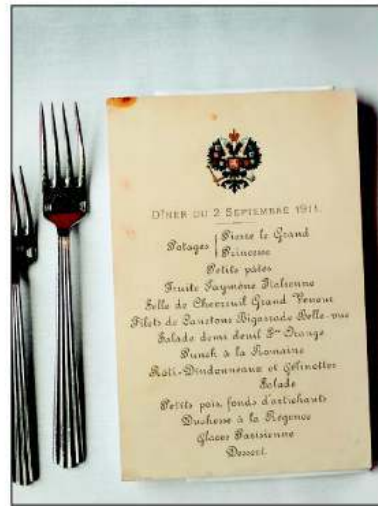 DÎNER DU 2 SEPTEMBRE 1911.
Potages Pierre le Grand
Princesse
Petits pâtés
Truite Laymône Italienne
Selle de Chevreuil Grand Veneur
Filets de Canetons Bigarrade Belle-vue
Salade demi deuil Sce Orange
Punch à la Romaine
Rôti-Dindonneaux et Gélinottes
Salade
Petits pois, fonds d'artichauts
Duchesse à la Régence
Glaces Parisienne
Dessert